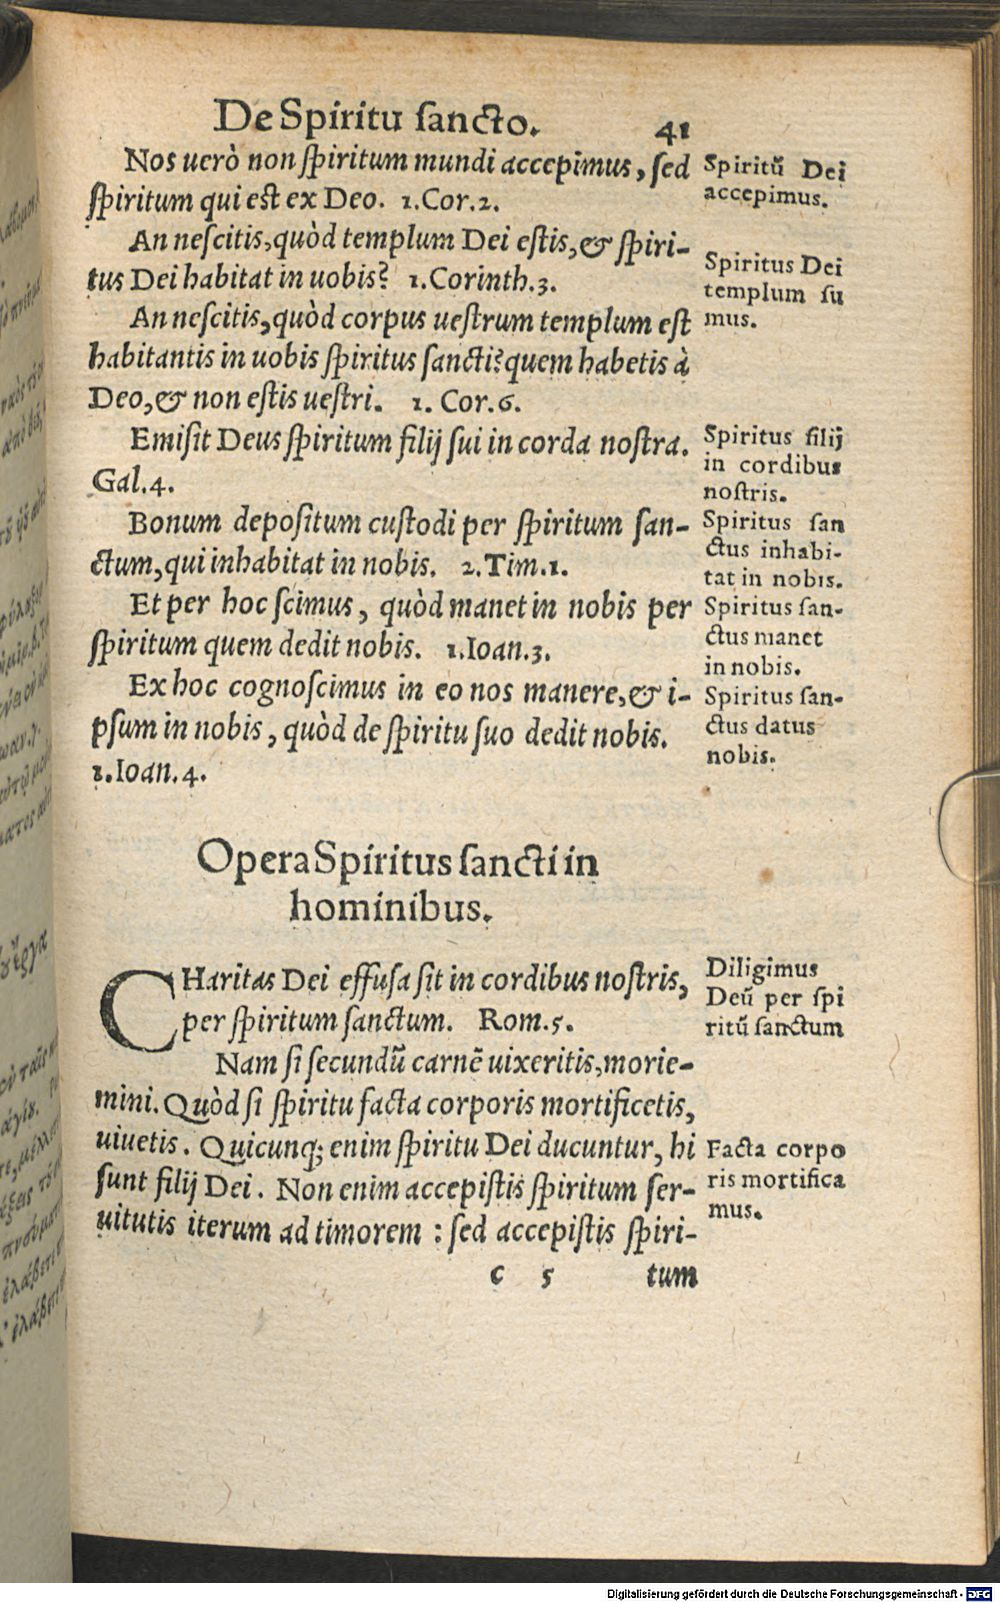 De Spiritu ſancto. 41
Nos uerò non ſpiritum mundi accepimus, ſed
ſpiritum qui est ex Deo. 1.Cor.2.
An neſcitis, quòd templum Dei eſtis, & ſpiri-
tus Dei habitat in uobis? 1.Corinth.3.
An neſcitis, quòd corpus ueſtrum templum eſt
habitantis in uobis ſpiritus ſancti? quem habetis à
Deo, & non eſtis ueſtri. 1. Cor.6.
Emiſit Deus ſpiritum filij ſui in corda noſtra.
Gal.4.
Bonum depoſitum cuſtodi per ſpiritum ſan-
ctum, qui inhabitat in nobis. 2.Tim.1.
Et per hoc ſcimus, quòd manet in nobis per
ſpiritum quem dedit nobis. 1.Ioan.3.
Ex hoc cognoſcimus in eo nos manere, & i-
pſum in nobis, quòd de ſpiritu ſuo dedit nobis.
1.Ioan.4.
Spiritū Dei
accepimus.
Spiritus Dei
templum ſu
mus.
Spiritus filij
in cordibus
noſtris.
Spiritus ſan
ctus inhabi-
tat in nobis.
Spiritus ſan-
ctus manet
in nobis.
Spiritus ſan-
ctus datus
nobis.
Opera Spiritus ſancti in
hominibus.
CHaritas Dei effuſa ſit in cordibus noſtris,
per ſpiritum ſanctum. Rom.5.
Nam ſi ſecundū carnē uixeritis, morie-
mini. Quòd ſi ſpiritu facta corporis mortificetis,
uiuetis. Quicunq; enim ſpiritu Dei ducuntur, hi
ſunt filij Dei. Non enim accepiſtis ſpiritum ſer-
uitutis iterum ad timorem : ſed accepiſtis ſpiri-
Diligimus
Deū per ſpi
ritū ſanctum
Facta corpo
ris mortifica
mus.
c 5 tum
Digitalisierung gefördert durch die Deutsche Forschungsgemeinschaft - DFG